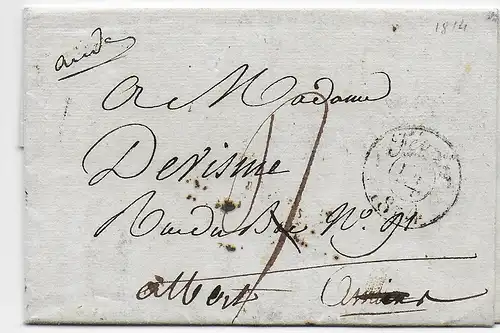 1814
A Madame
Devisme
Rue du Bac No. 91
albert Amiens